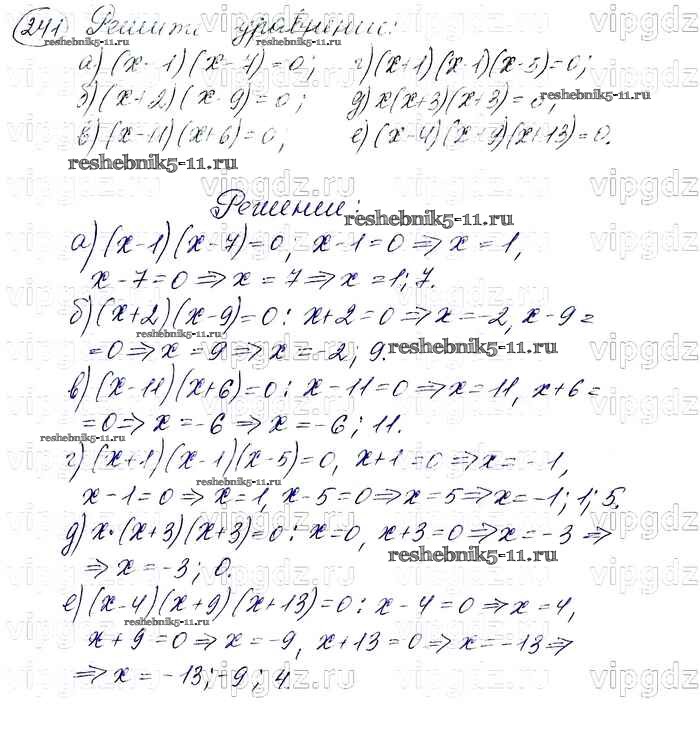 241 Решите уравнение:
а) (x-1)(x-7)=0; г) (x+1)(x-1)(x-5)=0;
б) (x+2)(x-9)=0; д) x(x+3)(x+3)=0;
в) (x-11)(x+6)=0; е) (x-4)(x+9)(x+13)=0.
Решение:
а) (x-1)(x-7)=0, x-1=0 => x=1,
x-7=0 => x=7 => x=1; 7.
б) (x+2)(x-9)=0: x+2=0 => x=-2, x-9=
=0 => x=9 => x=-2; 9.
в) (x-11)(x+6)=0: x-11=0 => x=11, x+6=
=0 => x=-6 => x=-6; 11.
г) (x+1)(x-1)(x-5)=0, x+1=0 => x=-1,
x-1=0 => x=1, x-5=0 => x=5 => x=-1; 1; 5.
д) x·(x+3)(x+3)=0: x=0, x+3=0 => x=-3 =>
=> x=-3; 0.
е) (x-4)(x+9)(x+13)=0: x-4=0 => x=4,
x+9=0 => x=-9, x+13=0 => x=-13 =>
=> x=-13; -9; 4.
reshebnik5-11.ru
vipgdz.ru